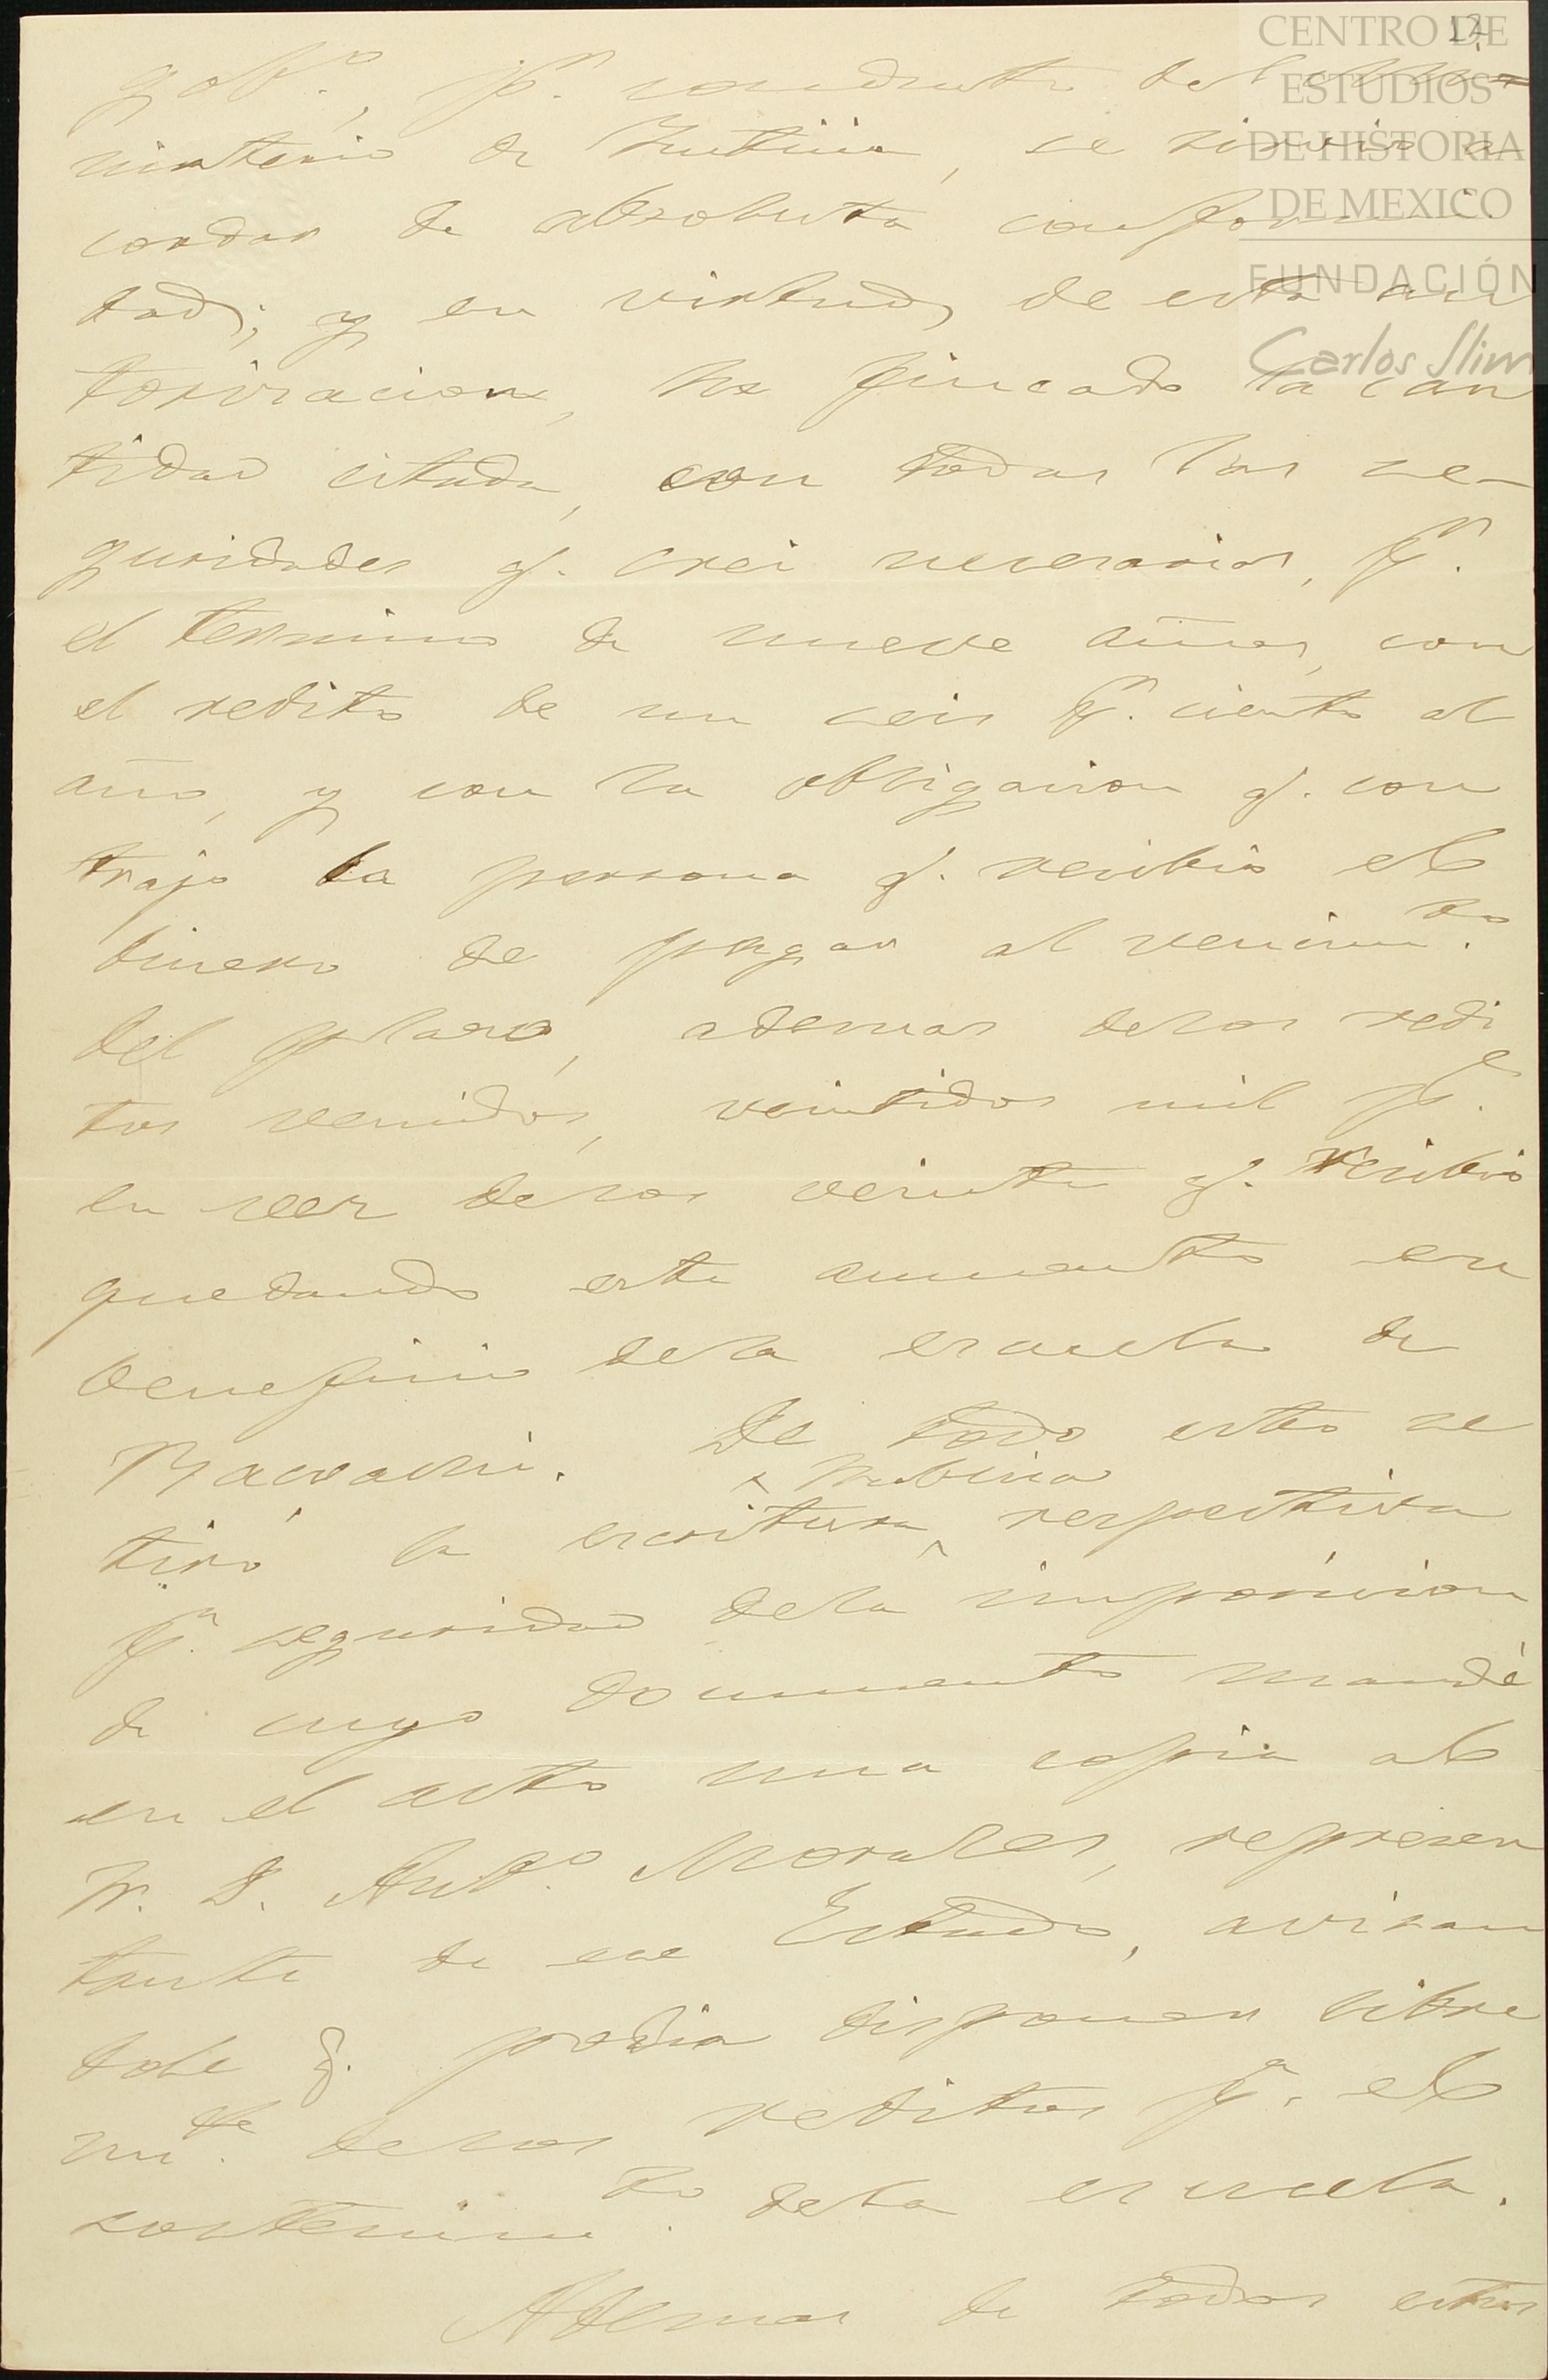 CENTRO DE
ESTUDIOS
DE HISTORIA
DE MEXICO
FUNDACIÓN
Carlos Slim
12
gob.º, p.r conducto del Mi-
nisterio de Justicia, se sirvió a-
cordar de absoluta conformi-
dad; y en virtud de esta au
torizacion, he fincado la can
tidad citada, con todas las se-
guridades q. crei necesarias, p.r
el termino de nueve años, con
el redito de un seis p.r ciento al
año, y con la obligacion q. con
trajo la persona q. recibió el
dinero de pagar al vencim.to
del plazo, ademas delos redi
tos vencidos, veintidos mil p.s
en vez delos veinte q. recibió
quedando este aumento en
beneficio dela escuela de
Bacoachi. De todo esto se
tiró la escritura publica respectiva
p.a seguridad dela imposicion
de cuyo documento mandé
en el acto una copia al
Sr. D. Ant.º Morales, represen
tante de ese Estado, avisan
dole q. podia disponer libre
m.te delos reditos p.a el
sostenim.to dela escuela.
Ademas de todos estos